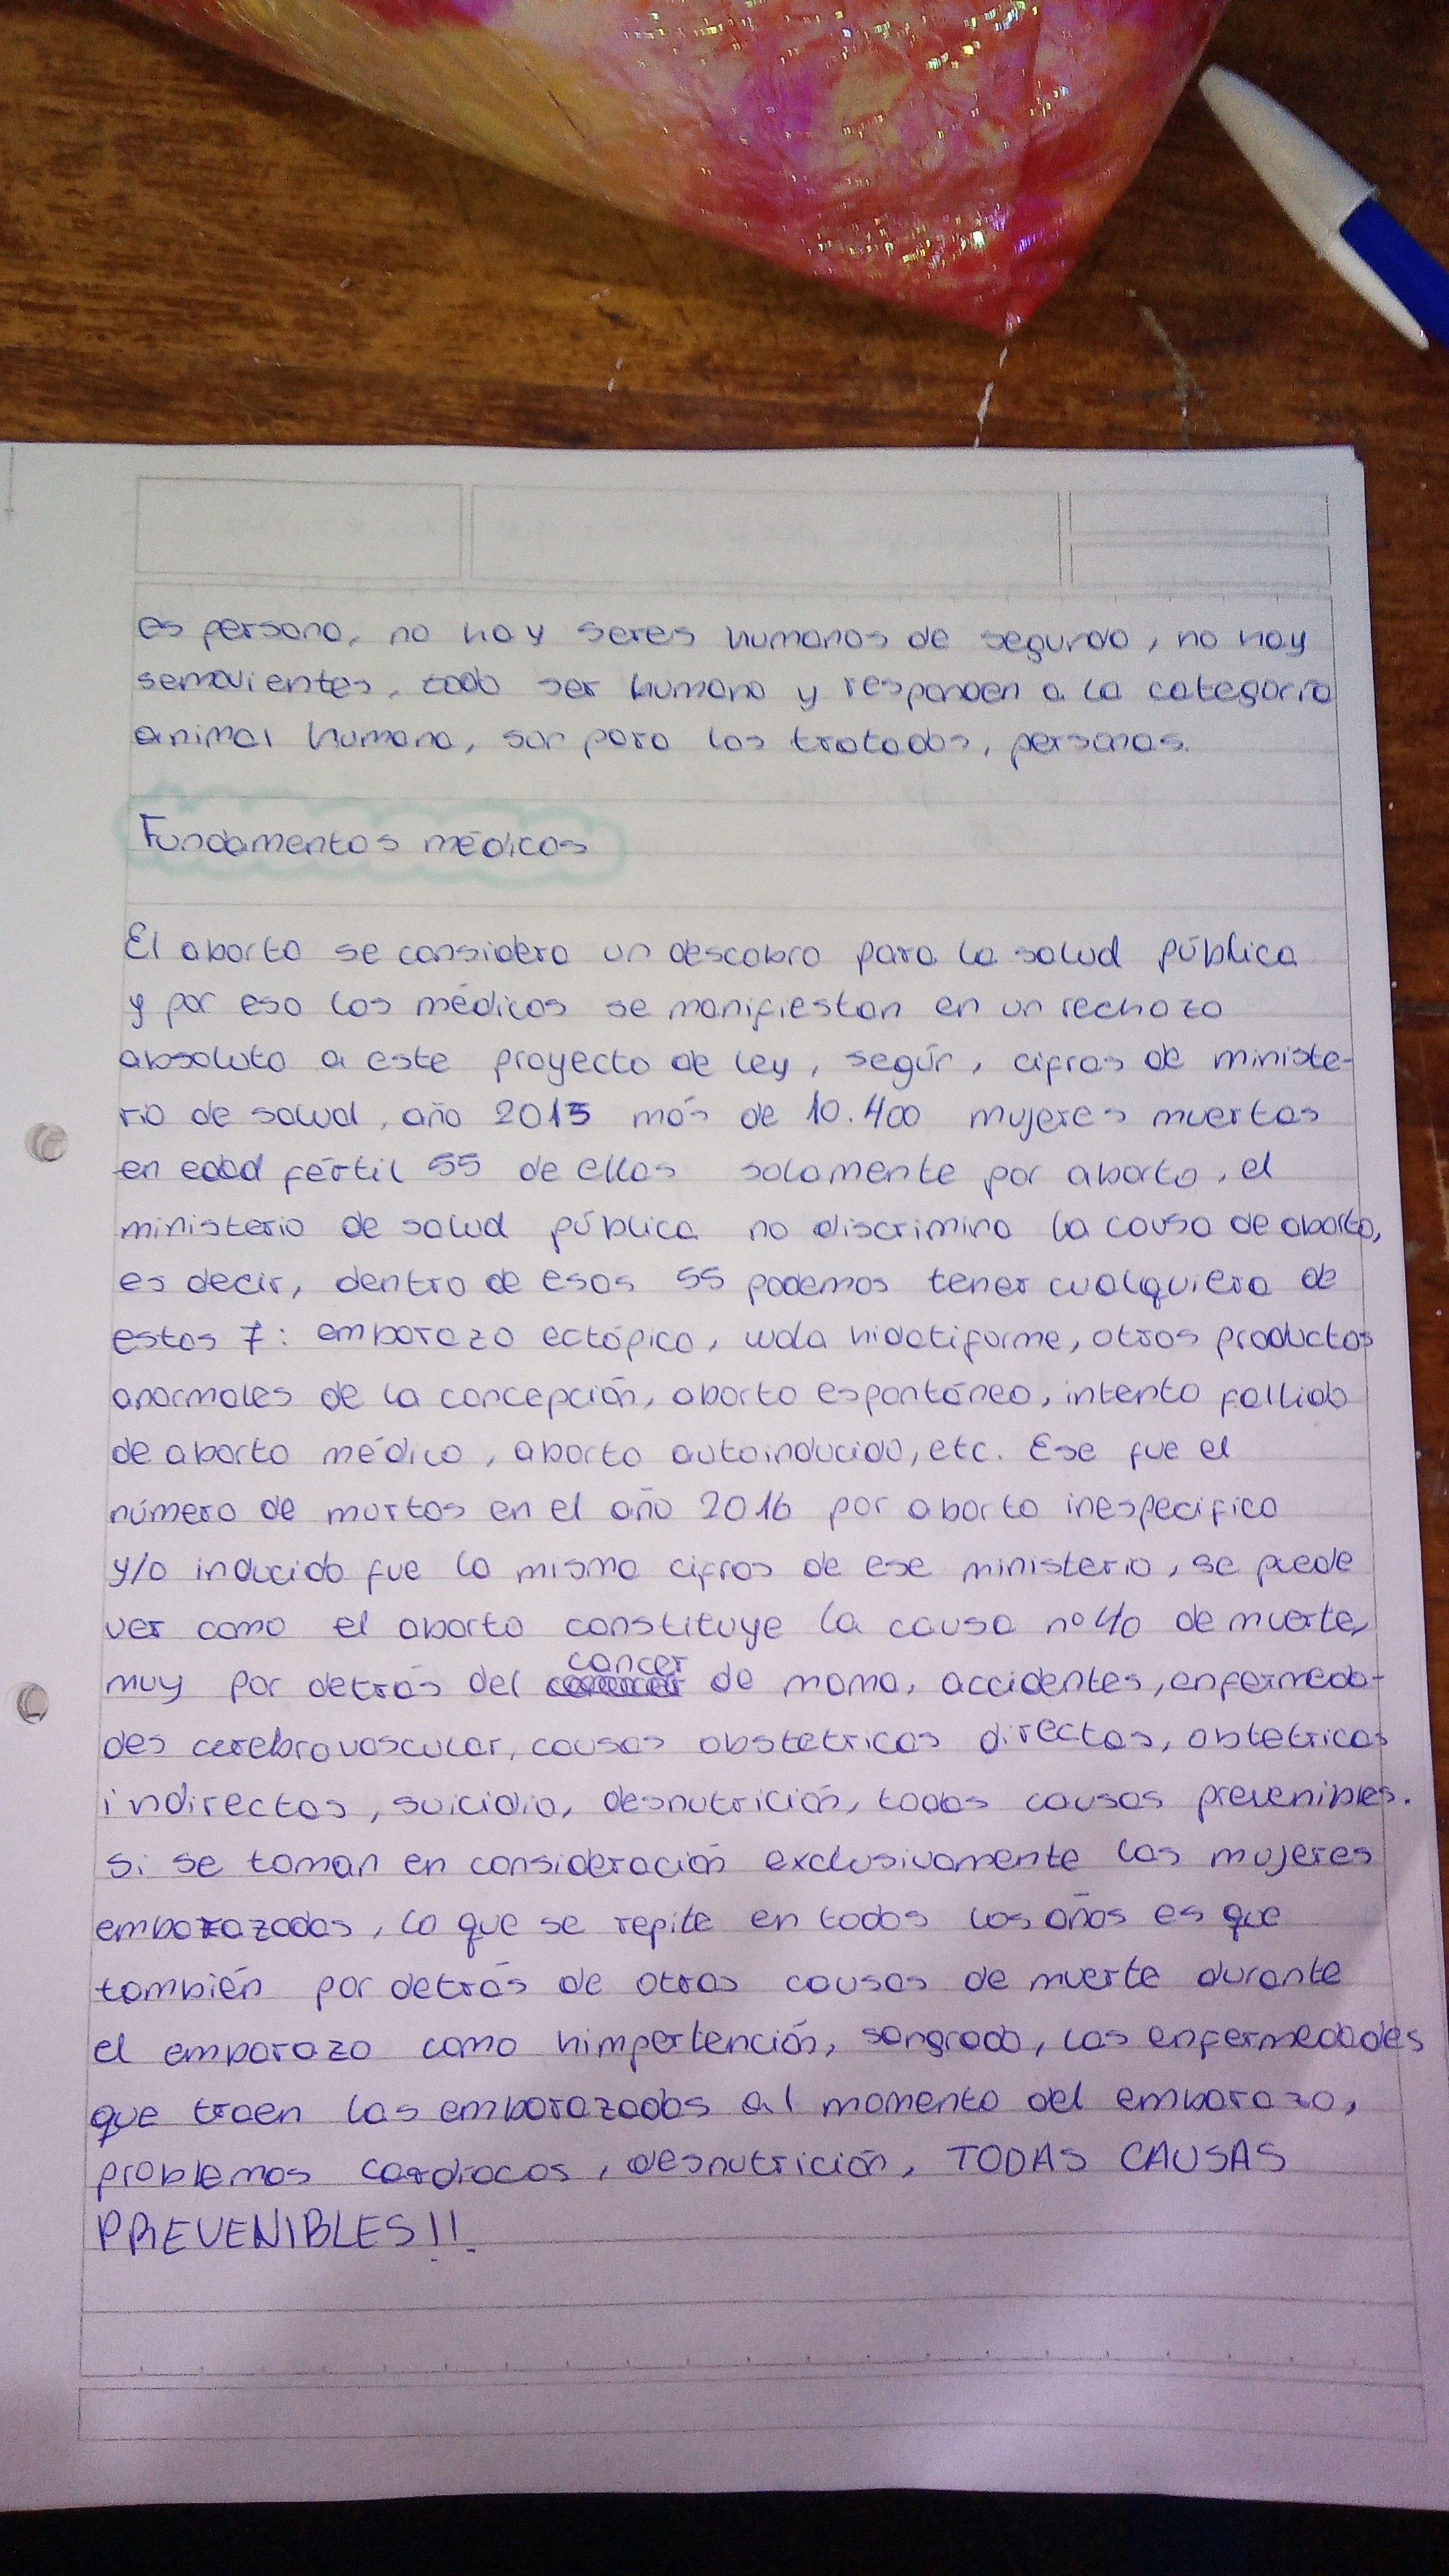 es persona, no hay seres humanos de segunda, no hay
semovientes, todo ser humano y responden a la categoria
animal humana, son para los tratados, personas.
Fundamentos médicos
El aborto se considera un descabro para la salud pública
y por eso los médicos se manifiestan en un rechazo
absoluto a este proyecto de ley, según, cifras de ministe-
rio de salud, año 2015 más de 10.400 mujeres muertas
en edad fértil 55 de ellas solamente por aborto, el
ministerio de salud pública no discrimina la causa de aborto,
es decir, dentro de esas 55 podemos tener cualquiera de
estos 7: embarazo ectópico, wola hidatiforme, otros productos
anormales de la concepción, aborto espontáneo, intento fallido
de aborto médico, aborto autoinducido, etc. Ese fue el
número de murtos en el año 2016 por aborto inespecifico
y/o inducido fue la misma cifras de ese ministerio, se puede
ver como el aborto constituye la causa nº 40 de muerte,
muy por detrás del cancer de mama, accidentes, enfermeda-
des cerebrovascular, causas obstetricas directas, obtetricas
indirectas, suicidio, desnutrición, todas causas prevenibles.
si se toman en consideración exclusivamente las mujeres
embarazadas, lo que se repite en todos los años es que
también por detrás de otras causas de muerte durante
el embarazo como himpertención, sangrado, las enfermedades
que traen las embarazadas al momento del embarazo,
problemas cardiacos, desnutrición, TODAS CAUSAS
PREVENIBLES!!